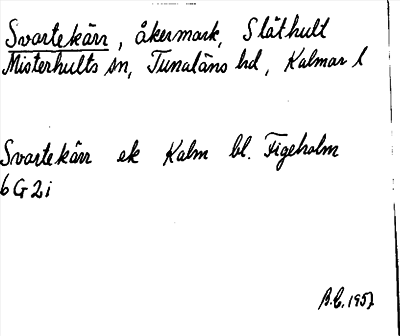 Svartekärr, åkermark, Slåthult
Misterhults sn, Tunaläns hd, Kalmar l
Svartekärr ek Kalm bl. Figeholm
6 G 2 i
B.C. 1957